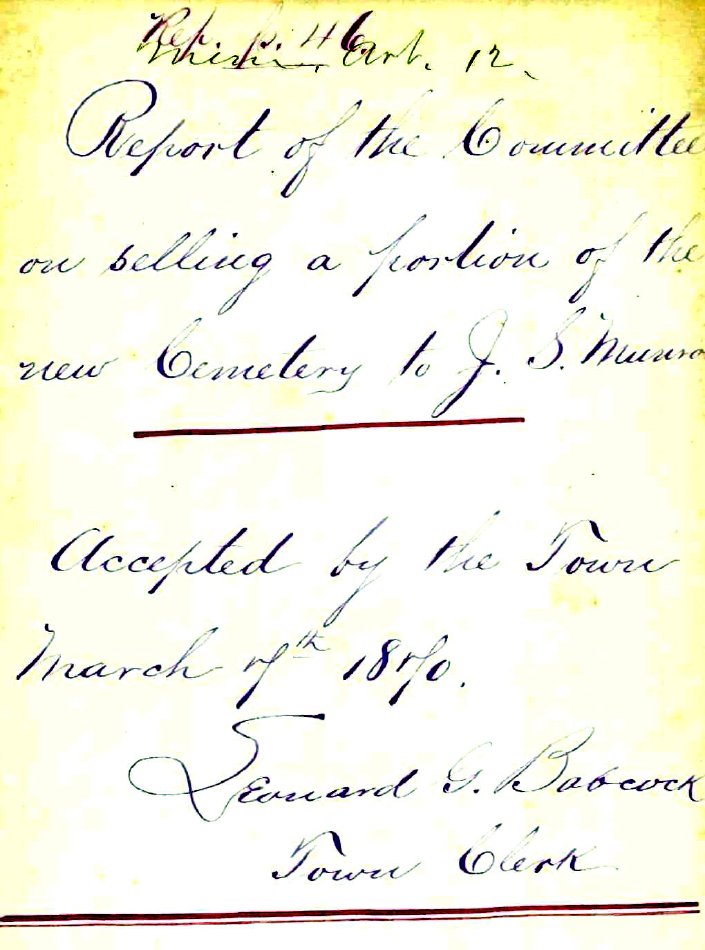 Rep. p. 46
Art. 12.
Report of the Committee
on selling a portion of the
new Cemetery to J. S. Munro
Accepted by the Town
March 7th 1870.
Leonard G. Babcock
Town Clerk